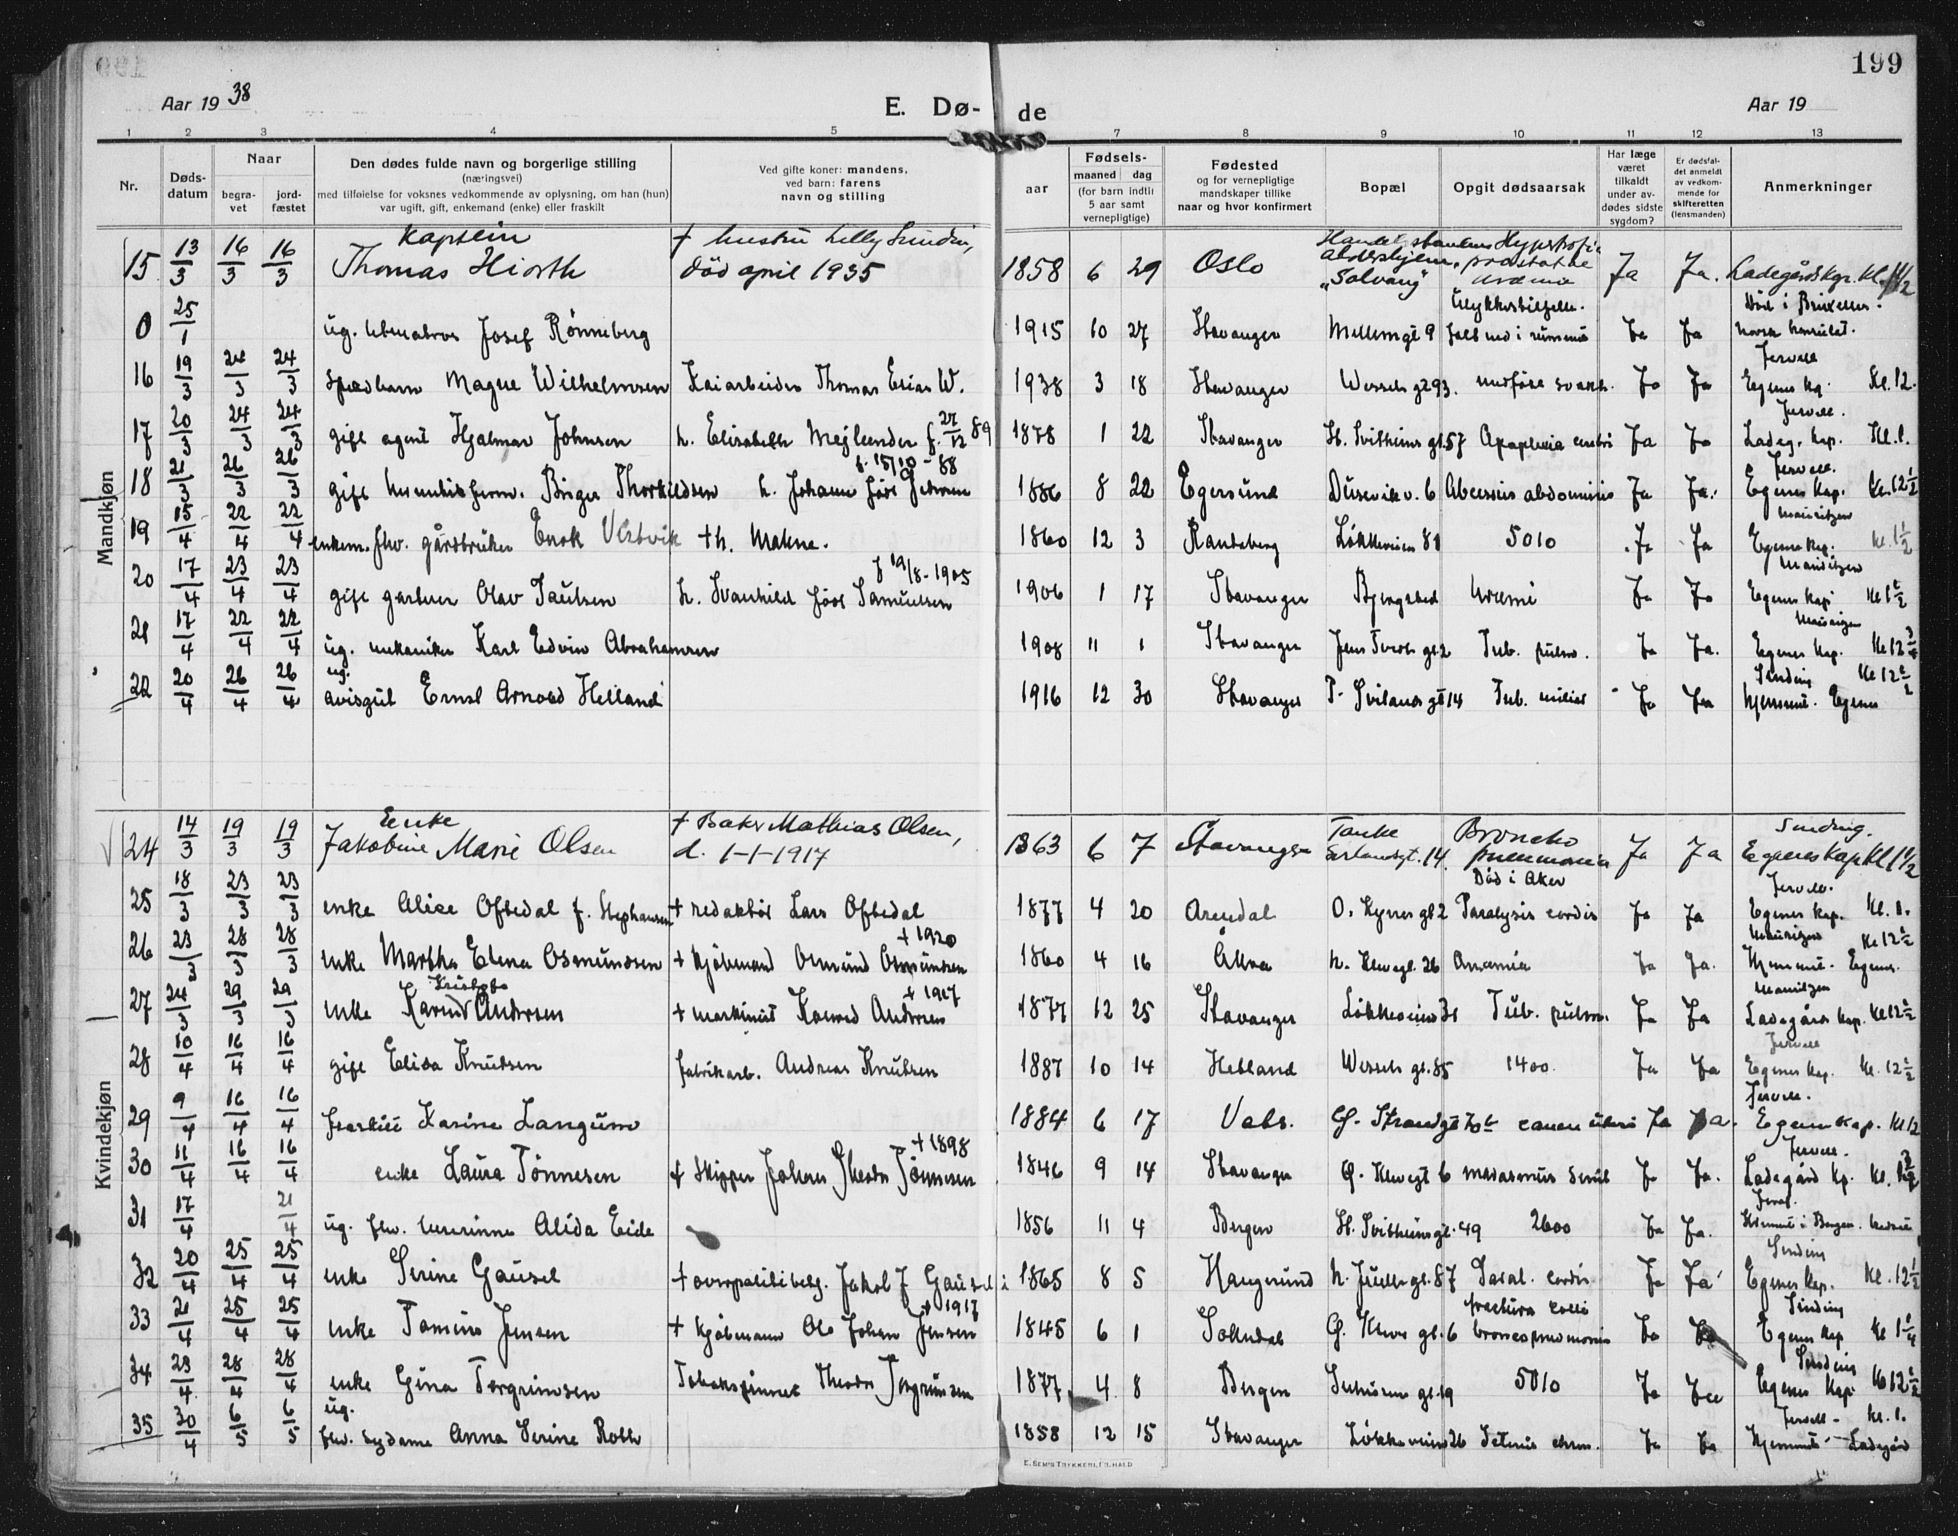 199
Aar 19 38
E. Dø- de
Aar 19
1 2 3 4 5 7 8 9 10 11 12 13
Nr.
Døds-datum
Naar
begra-vet
jord-fæstet
Den dødes fulde navn og borgerlige stilling
(næringsvei)
med tilføielse for voksnes vedkommende av oplysning, om han (hun)
var ugift, gift, enkemand (enke) eller fraskilt
Ved gifte koner: mandens,
ved barn: farens
navn og stilling
Fødsels-
aar
maaned dag
(for barn indtil
5 aar samt
vernepligtige)
Fødested
og for vernepligtige
mandskaper tillike
naar og hvor konfirmert
Bopæl
Opgit dødsaarsak
Har læge
været
tilkaldt
under av-
dødes sidste
sygdom?
Er dødsfal-
det anmeldt
av vedkom-
mende for
skifteretten
(lensmanden)
Anmerkninger
Mandkjøn
15 13/3 16/3 16/3 Kaptein Thomas Hiorth † hustru Lilly Sunden, død april 1935 1858 6 29 Oslo Handelsstandens Aldershjem, "Solvang" Hypertrofi prostatae uræmia Ja Ja. Ladegårds kp. Kl.
0 25/1 ug. Josef Rønneberg 1915 10 27 Stavanger 9 Ulykkestilfelle. Ja Ja Død i Bruxelles. norsk konsulat.
16 19/3 24/3 24/3 Spedbarn Magne Wilhelmsen Kaiarbeider Thomas Erias W. 1938 3 18 Stavanger Wessels gt 93. medføte svakh. Ja Ja Jervell Egenes kp. Kl. 12.
17 20/3 24/3 24/3 gift agent Hjalmar Johnsen h. Elisabeth Mejlænder f. 27/12 89 1878 1 22 Stavanger St. Svithuns gt. 57 Apoplexia cerebri Ja Ja Jervell. Ladeg. kap. Kl. 1.
18 21/3 26/3 26/3 gift Birger Thorkildsen h. Johanne født f. 15/10 - 88 1886 8 22 Egersund Dusevik v. 6 Abcessus abdominis Ja Ja. Jervell. Egenes kap. Kl. 12 1/2
19 15/4 22/4 22/4 enkem. fhv. gårdbruker Enok Vistvik † h. Malene. 1860 12 3 Randaberg Løkkeveien 81 5010 Ja Ja Mauritzen Egenes kap. Kl. 1 1/2
20 17/4 23/4 23/4 gift gartner Olav Paulsen h. Svanhild født Samuelsen f 19/8 - 1905 1906 1 17 Stavanger Bjergsted Uræmi Ja Ja Mauritzen Egenes kap Kl 1 1/2
21 17/4 22/4 22/4 ug. mekaniker Karl Edvin Abrahamsen 1908 11 1 Stavanger Jens gt 2 Tub. pulm. Ja Ja. Egenes kap. Kl 12
22 20/4 26/4 26/4 ug. avisgut Ernst Arnold Helland 1916 12 30 Stavanger gt 14 Tub. miliar Ja Ja Sinding Kl 12 1/2 hjemmet. Egenes
Kvindekjøn
24 14/3 19/3 19/3 Enke Jakobine Marie Olsen † Baker Mathias Olsen, d. 1-1-1917 1863 6 7 Stavanger Tanke gt. 14. Broncho pneumonia Ja Ja Sinding. Egenes kap Kl 1 1/2
25 18/3 23/3 23/3 enke Alice Oftedal f. Stephansen † redaktør Lars Oftedal 1877 4 20 Arendal O. Kyrres gt 2 Død i Aker Paralysis cordis Ja Ja Jervell. Egenes kap. Kl. 1.
26 23/3 28/3 28/3 enke Martha Elena Osmundsen † kjøbmand Osmund Osmundsen † 1920 1860 4 16 Åkra n. Klevegt. 26 Anæmia Ja Ja. Mauritzen Kl 12 1/2 Hjemmet. Egenes.
27 24/3 29/3 29/3 enke Karen Andersen † maskinist Konrad Andersen † 1917 1877 12 25 Stavanger Løkkeveien 31 Tub. pulm. Ja Ja Mauritzen Ladegård kap. Kl 12 1/2
28 10/4 16/4 16/4 gift Elida Knutsen fabrikarb. Andreas Knutsen 1887 10 14 Hebland Wessels gt. 85 1400. Ja Ja Jervell Egenes kap. Kl. 12 1/2
29 9/4 16/4 16/4 fraskilt Karine Langum 1884 6 17 Vats. Ø. Strandgt cancer uteri Ja Ja. Jervell. Egenes kap. Kl 12
30 11/4 16/4 16/4 enke Laura Tønnesen † Skipper Johan Theodor Tønnesen † 1898 1846 9 14 Stavanger Ø. Klevegt 6 marasmus senil Ja Ja. Jervell. Ladegård kp. Kl.
31 17/4 21/4 ug. fhv. lærerinne Alida Eide 1856 11 4 Bergen St. Svithuns gt. 49 2600 Ja Ja. i Bergen.
32 20/4 25/4 25/4 enke Serine Gausel † overpolitibetj. Jakob J Gausel 1865 8 5 Haugesund n. gt. 87 Paral. cordis Ja Ja Sinding Egenes kap. Kl. 12 1/2
33 21/4 25/4 25/4 enke Tomine Jensen † kjøbmann Ole Johan Jensen † 1917 1845 6 1 Sokndal Ø. Kleve gt. 6 fractura colli broncopneumonia Ja Ja Sinding Egenes kap Kl
34 23/4 28/4 28/4 enke Gina Torgrimsen Tobakspinner Theodor Torgrimsen 1877 4 8 Bergen gt. 19 5010 Ja Ja Sinding Egenes kap. Kl 12 1/2
35 30/4 6/5 6/5 ug. fhv. sydame Anna Serine Roth 1858 12 15 Stavanger Løkkeveien 26 Ja Ja Jervell - Kl. 1. Hjemmet - Ladegård
E. SEM'S TRYKKERI, FR.HALD